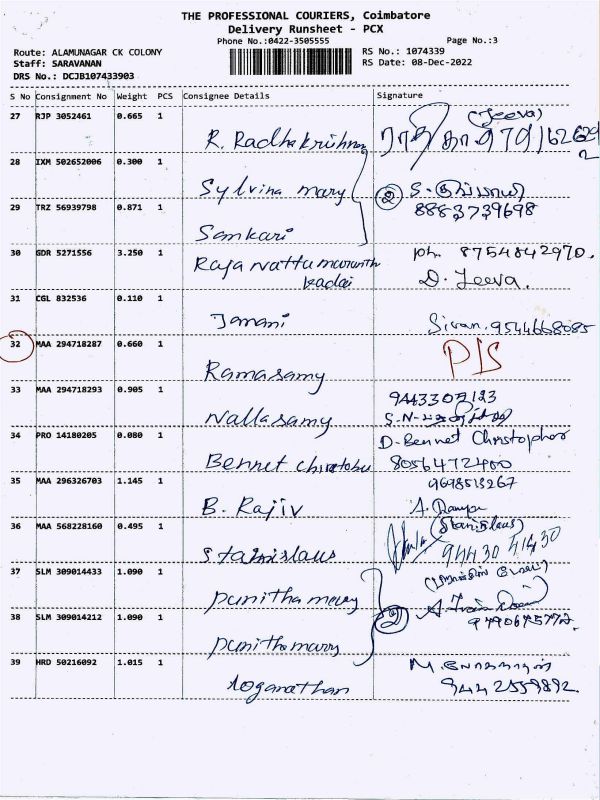 THE PROFESSIONAL COURIERS, Coimbatore
Delivery Runsheet - PCX
Phone No.:0422-3505555 Page No.:3
Route: ALAMUNAGAR CK COLONY RS No.: 1074339
Staff: SARAVANAN RS Date: 08-Dec-2022
DRS No.: DCJB107433903
S No Consignment No Weight PCS Consignee Details Signature
27 RJP 3052461 0.665 1 R. Radhakrishnan (Jeeva)
28 IXM 502652006 0.300 1 Sylvina mary ②
8883739698
29 TRZ 56939798 0.871 1 Sankari
30 GDR 5271556 3.250 1 Raja nattu marunthu kadai ph. 8754842970.
D. Jeeva.
31 CGL 832536 0.110 1 Janani Sivan. 9544668085
32 MAA 294718287 0.660 1 Ramasamy P/S
33 MAA 294718293 0.905 1 Nallasamy
S.N-
34 PRO 14180205 0.080 1 Bennet D-Bennet Christopher
8056472400
35 MAA 296326703 1.145 1 B. Rajiv 9698513267
36 MAA 568228160 0.495 1 Stanislaus (Stanislaus)
94430 41430
37 SLM 309014433 1.090 1 punitha mary
38 SLM 309014212 1.090 1 punitha mary ②
39 HRD 50216092 1.015 1 loganathan M.
9442559892.